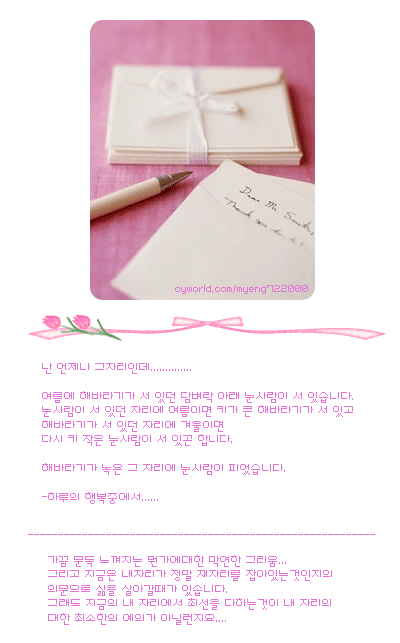 Dear Mr. Smith,
Thank you
cyworld.com/myeng722000
난 언제나 그자리인데..............
여름에 해바라기가 서 있던 담벼락 아래 눈사람이 서 있습니다.
눈사람이 서 있던 자리에 여름이면 키가 큰 해바라기가 서 있고
해바라기가 서 있던 자리에 겨울이면
다시 키 작은 눈사람이 서 있곤 합니다.
해바라기가 녹은 그 자리에 눈사람이 피었습니다.
-하루의 행복중에서......
가끔 문득 느껴지는 뭔가에대한 막연한 그리움...
그리고 지금은 내자리가 정말 제자리를 잡아있는것인지의
의문으로 삶을 살아갈때가 있습니다.
그래도 지금의 내 자리에서 최선을 다하는것이 내 자리의
대한 최소한의 예의가 아닐런지요....